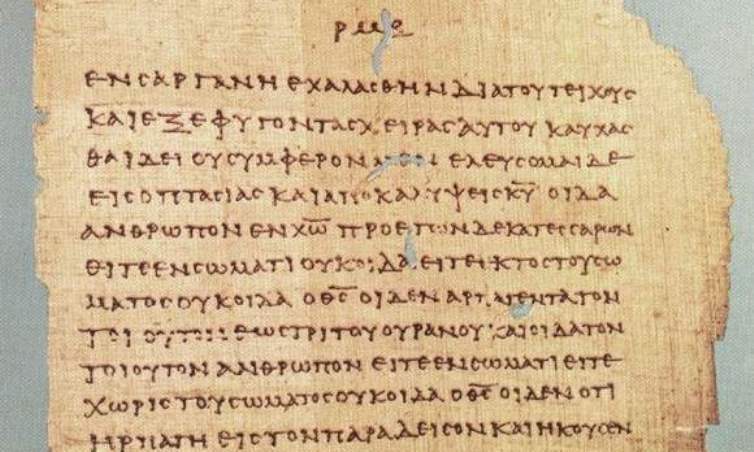 ΕΝϹΑΡΓΑΝΗΕΧΑΛΑϹΘΗΝΔΙΑΤΟΥΤΕΙΧΟΥϹ
ΚΑΙΕΞΕΦΥΓΟΝΤΑϹΧΕΙΡΑϹΑΥΤΟΥΚΑΥΧΑϹ
ΘΑΙΔΕΙΟΥϹΥΜΦΕΡΟΝΜΕΝΕΛΕΥϹΟΜΑΙΔΕ
ΕΙϹΟΠΤΑϹΙΑϹΚΑΙΑΠΟΚΑΛΥΨΕΙϹΚ̅Υ̅ΟΙΔΑ
ΑΝΘΡΩΠΟΝΕΝΧ̅Ω̅ΠΡΟΕΤΩΝΔΕΚΑΤΕϹϹΑΡΩΝ
ΕΙΤΕΕΝϹΩΜΑΤΙΟΥΚΟΙΔΑΕΙΤΕΕΚΤΟϹΤΟΥϹΩ
ΜΑΤΟϹΟΥΚΟΙΔΑΟΘ̅Ϲ̅ΟΙΔΕΝΑΡΠΑΓΕΝΤΑΤΟΝ
ΤΟΙΟΥΤΟΝΕΩϹΤΡΙΤΟΥΟΥΡΑΝΟΥΚΑΙΟΙΔΑΤΟΝ
ΤΟΙΟΥΤΟΝΑΝΘΡΩΠΟΝΕΙΤΕΕΝϹΩΜΑΤΙΕΙΤΕ
ΧΩΡΙϹΤΟΥϹΩΜΑΤΟϹΟΥΚΟΙΔΑΟΘ̅Ϲ̅ΟΙΔΕΝΟΤΙ
ΗΡΠΑΓΗΕΙϹΤΟΝΠΑΡΑΔΕΙϹΟΝΚΑΙΗΚΟΥϹΕΝ